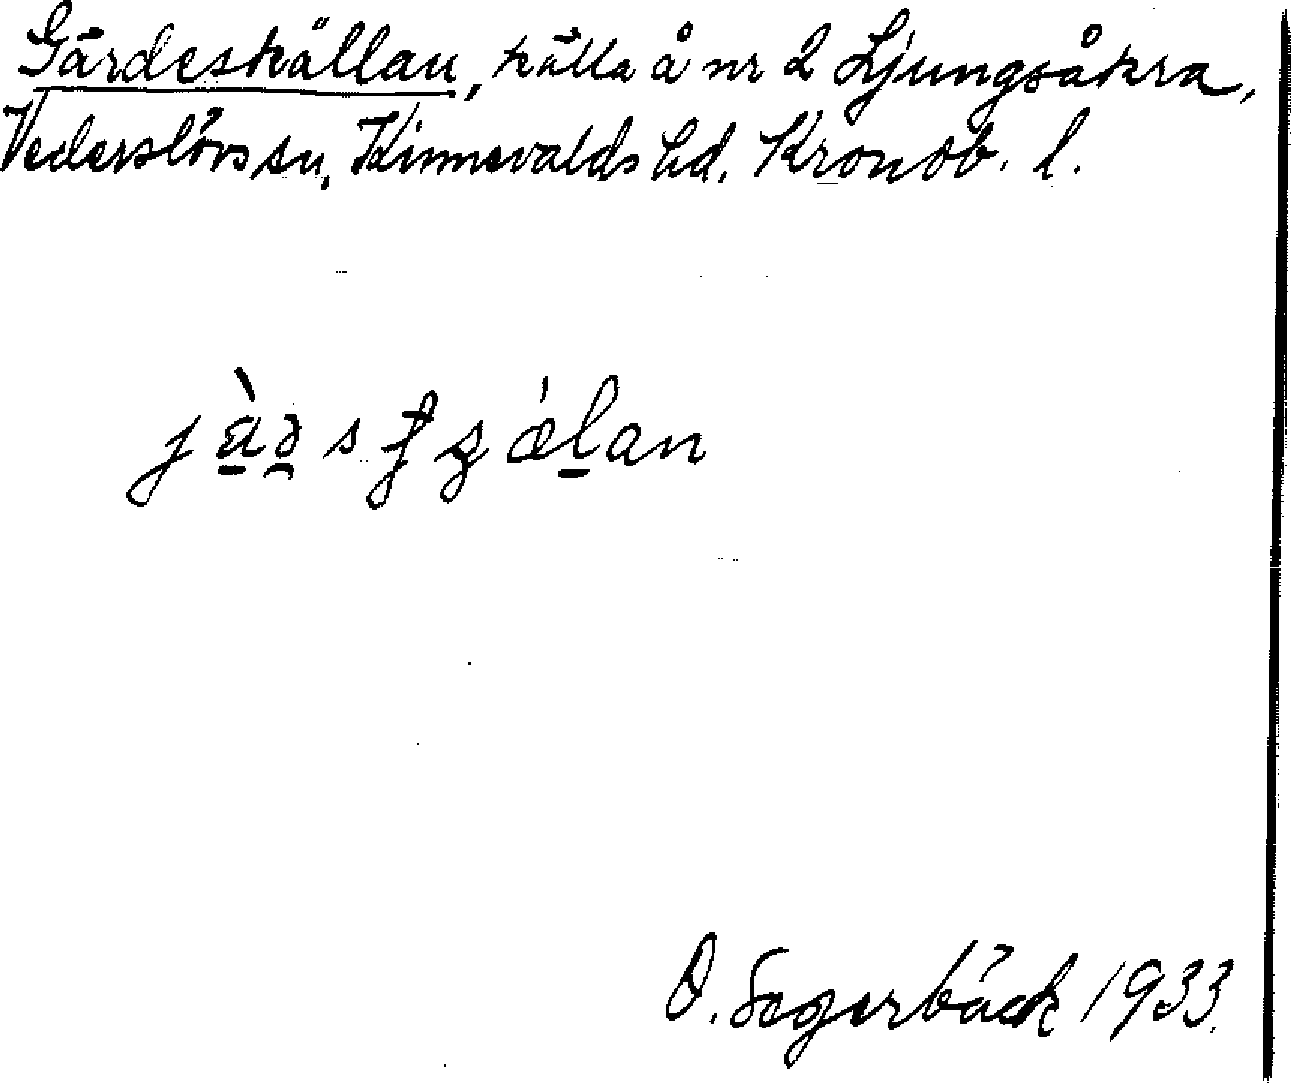 Gärdeskällan, källa å nr 2 Ljungsåkra,
Vederslövs sn, Kinnevalds hd, Kronob. l.
O. Segerbäck 1933.